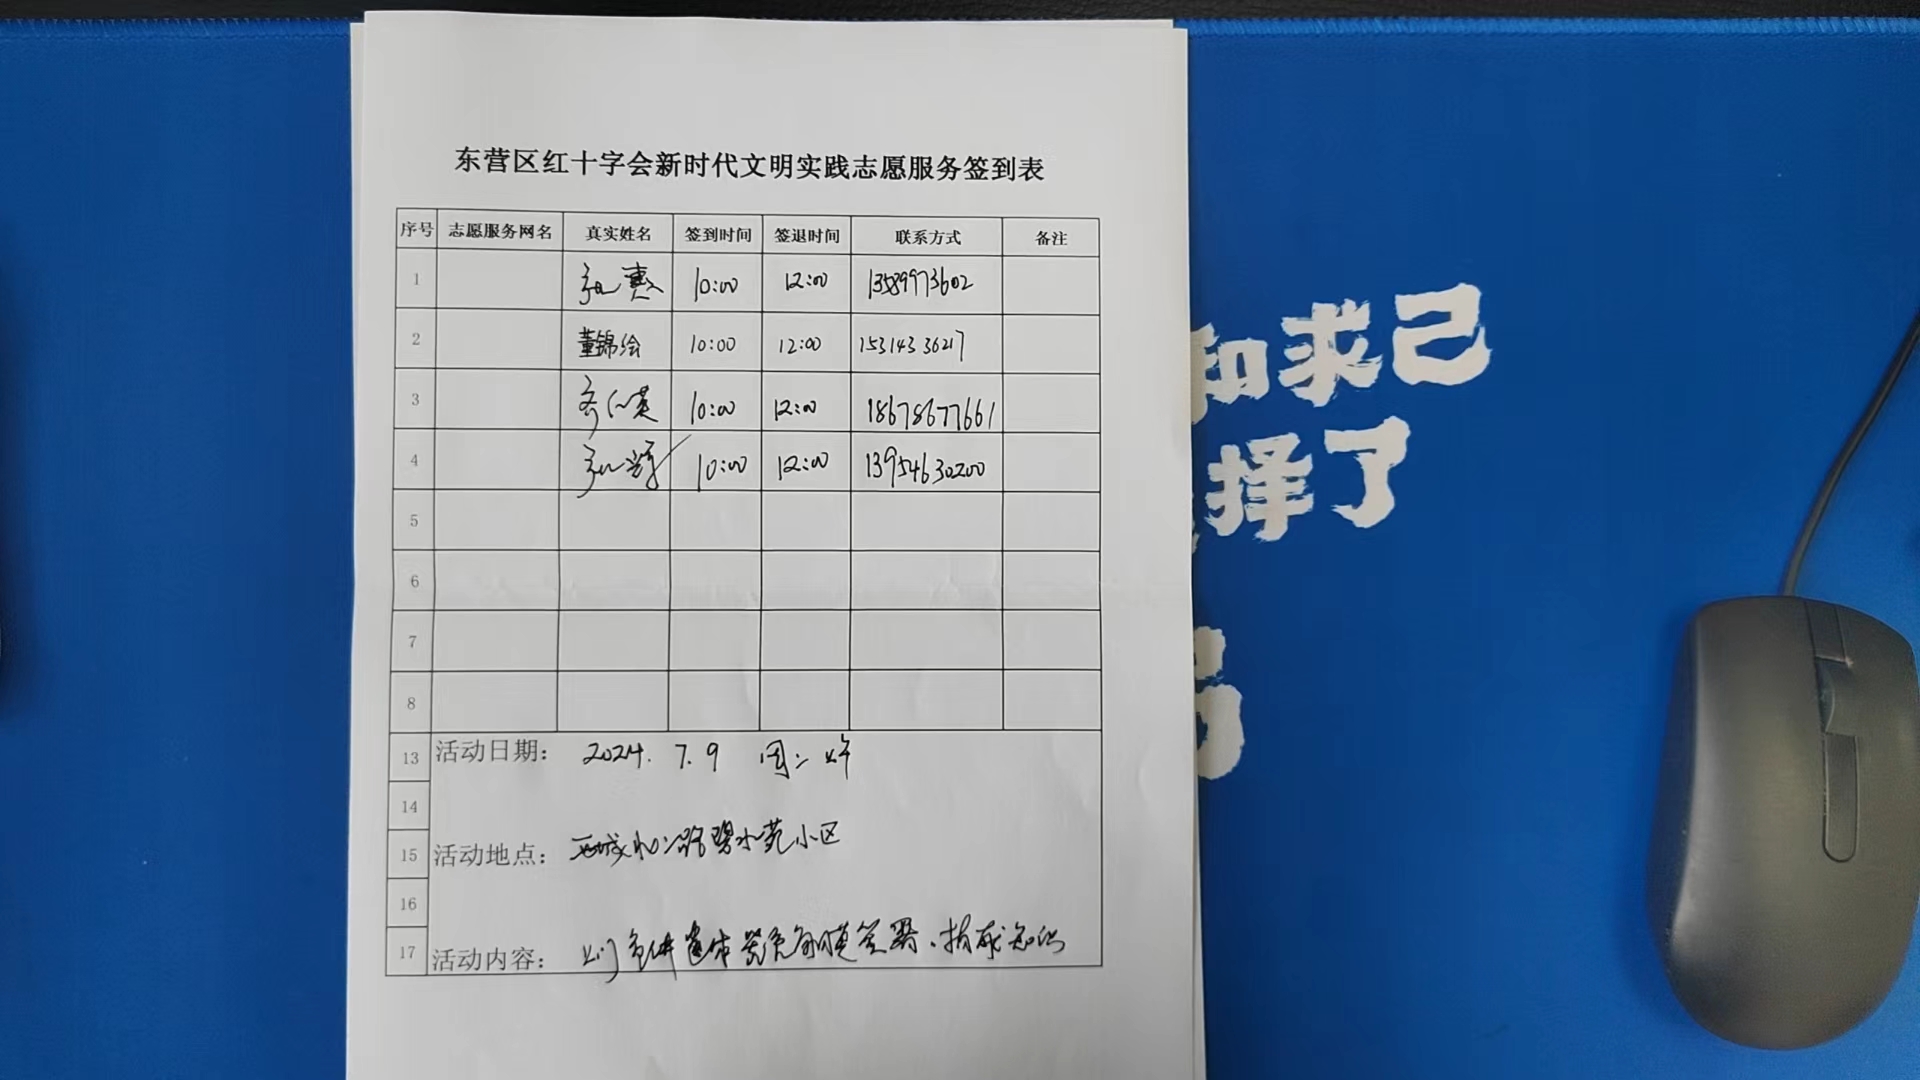 东营区红十字会新时代文明实践志愿服务签到表
序号 志愿服务网名 真实姓名 签到时间 签退时间 联系方式 备注
1 张惠 10:00 12:00 13589973602
2 董锦绘 10:00 12:00 15314336217
3 10:00 12:00 18678677661
4 10:00 12:00 13954630200
5
6
7
8
13 活动日期: 2024. 7. 9 周二 上午
14
15 活动地点: 西城 路碧水苑小区
16
17 活动内容: 上门 遗体器官角膜 知识
和求己
择了